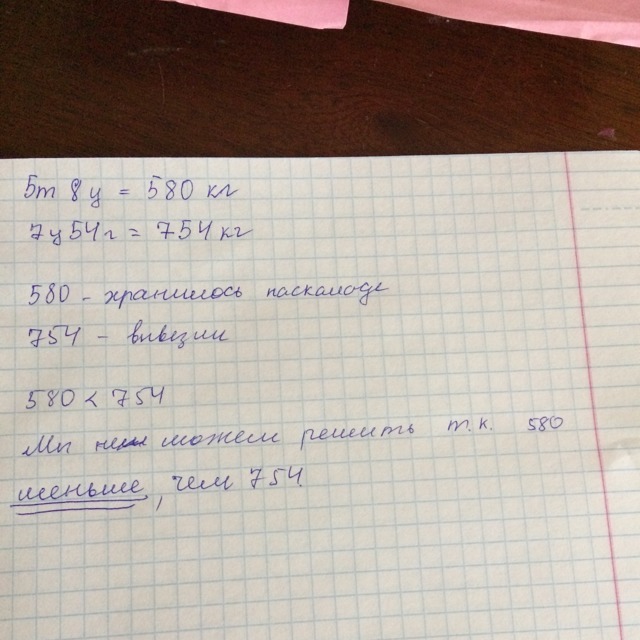 5т 8ц = 580 кг
7ц 54г = 754 кг
580 - хранилось наскладе
754 - вывезли
580 < 754
Мы не можем решить т.к. 580
меньше, чем 754